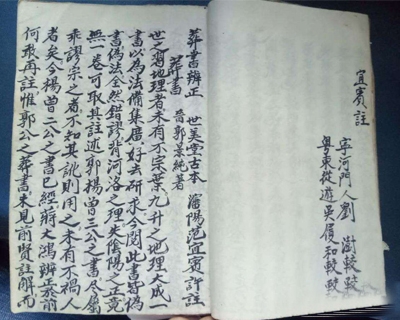 宜賓註
寧河門人劉 澍較
粵東從遊吳履和較
葬書辨正 世美堂古本 瀋陽范宜賓詳註
葬書 晉郭景純著
世之習地理者未有不宗葉九升之地理大成一
書以為法備集廣好去研求今閱此書皆偽
書偽法全然錯謬背河洛之理失陰陽之正竟
無一卷可取其註述郭楊曾三公之書尽屬
乖謬宗之者不知其訛則用之未有不禍人
者矣今楊曾二公之書已經蔣大鴻辨正於前
何敢再註惟郭公之葬書未見前賢註解而